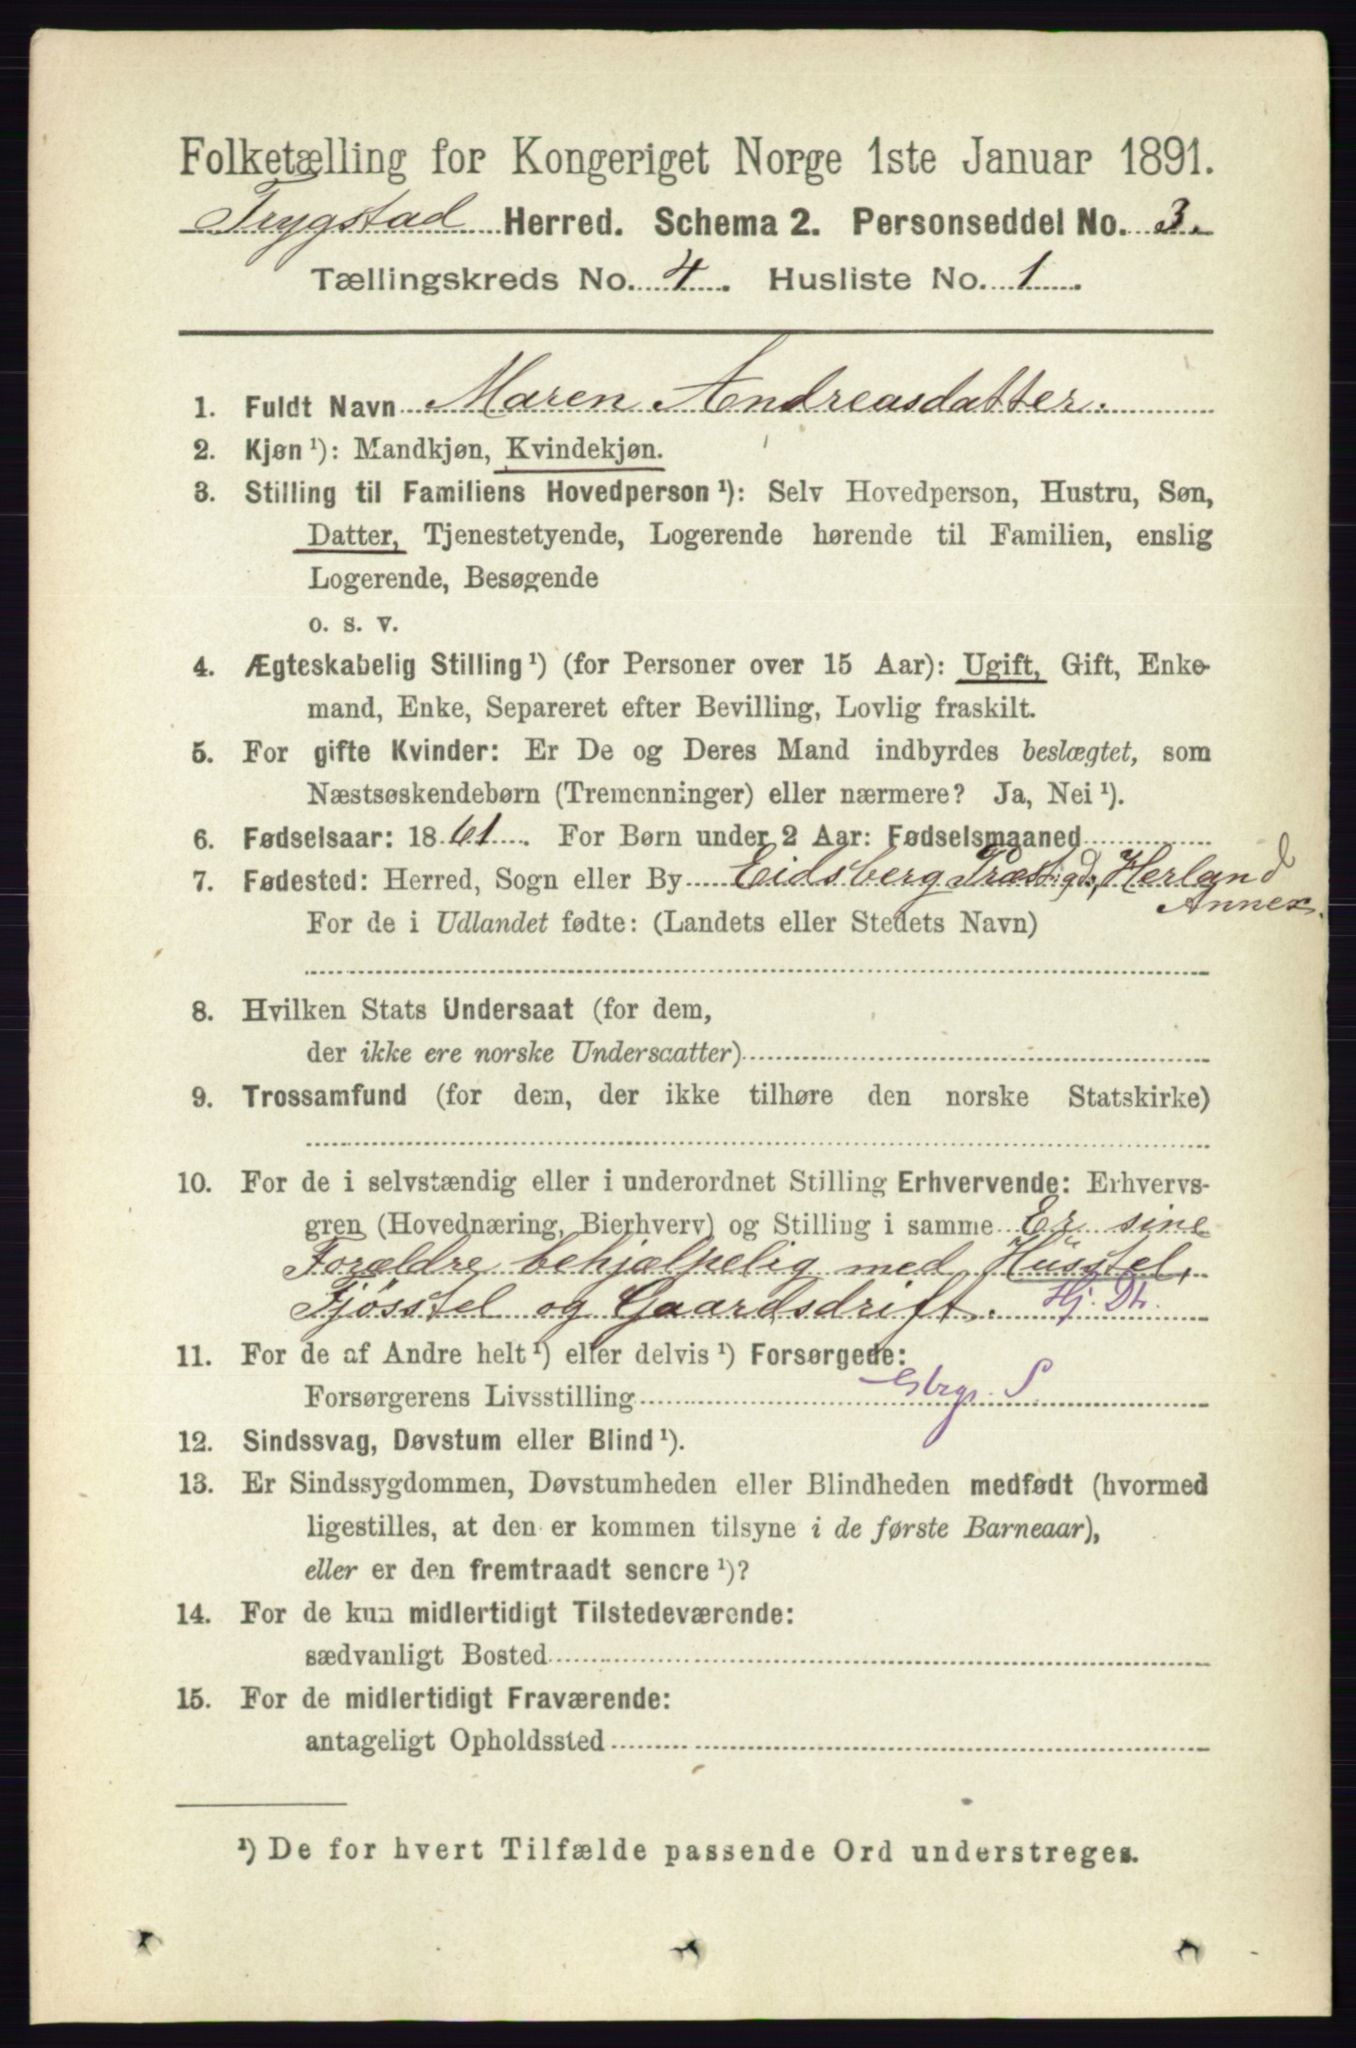 Folketælling for Kongeriget Norge 1ste Januar 1891.
Trygstad Herred. Schema 2. Personseddel No. 3.
Tællingskreds No. 4. Husliste No. 1.
1. Fuldt Navn Maren Andreasdatter.
2. Kjøn¹): Mandkjøn, Kvindekjøn.
3. Stilling til Familiens Hovedperson¹): Selv Hovedperson, Hustru, Søn,
Datter, Tjenestetyende, Logerende hørende til Familien, enslig
Logerende, Besøgende
o. s. v.
4. Ægteskabelig Stilling¹) (for Personer over 15 Aar): Ugift, Gift, Enke-
mand, Enke, Separeret efter Bevilling, Lovlig fraskilt.
5. For gifte Kvinder: Er De og Deres Mand indbyrdes beslægtet, som
Næstsøskendebørn (Tremenninger) eller nærmere? Ja, Nei¹).
6. Fødselsaar: 1861. For Børn under 2 Aar: Fødselsmaaned
7. Fødested: Herred, Sogn eller By Eidsberg Præstegd, Herland
Annex.
For de i Udlandet fødte: (Landets eller Stedets Navn)
8. Hvilken Stats Undersaat (for dem,
der ikke ere norske Undersaatter)
9. Trossamfund (for dem, der ikke tilhøre den norske Statskirke)
10. For de i selvstændig eller i underordnet Stilling Erhvervende: Erhvervs-
gren (Hovednæring, Bierhverv) og Stilling i samme Er sine
Forældre behjælpelig med Husstel,
Fjøsstel og Gaardsdrift. Hj. Dt.
11. For de af Andre helt¹) eller delvis¹) Forsørgede:
Forsørgerens Livsstilling Gbrgr. S.
12. Sindssvag, Døvstum eller Blind¹).
13. Er Sindssygdommen, Døvstumheden eller Blindheden medfødt (hvormed
ligestilles, at den er kommen tilsyne i de første Barneaar),
eller er den fremtraadt senere¹)?
14. For de kun midlertidigt Tilstedeværende:
sædvanligt Bosted
15. For de midlertidigt Fraværende:
antageligt Opholdssted
¹) De for hvert Tilfælde passende Ord understreges.